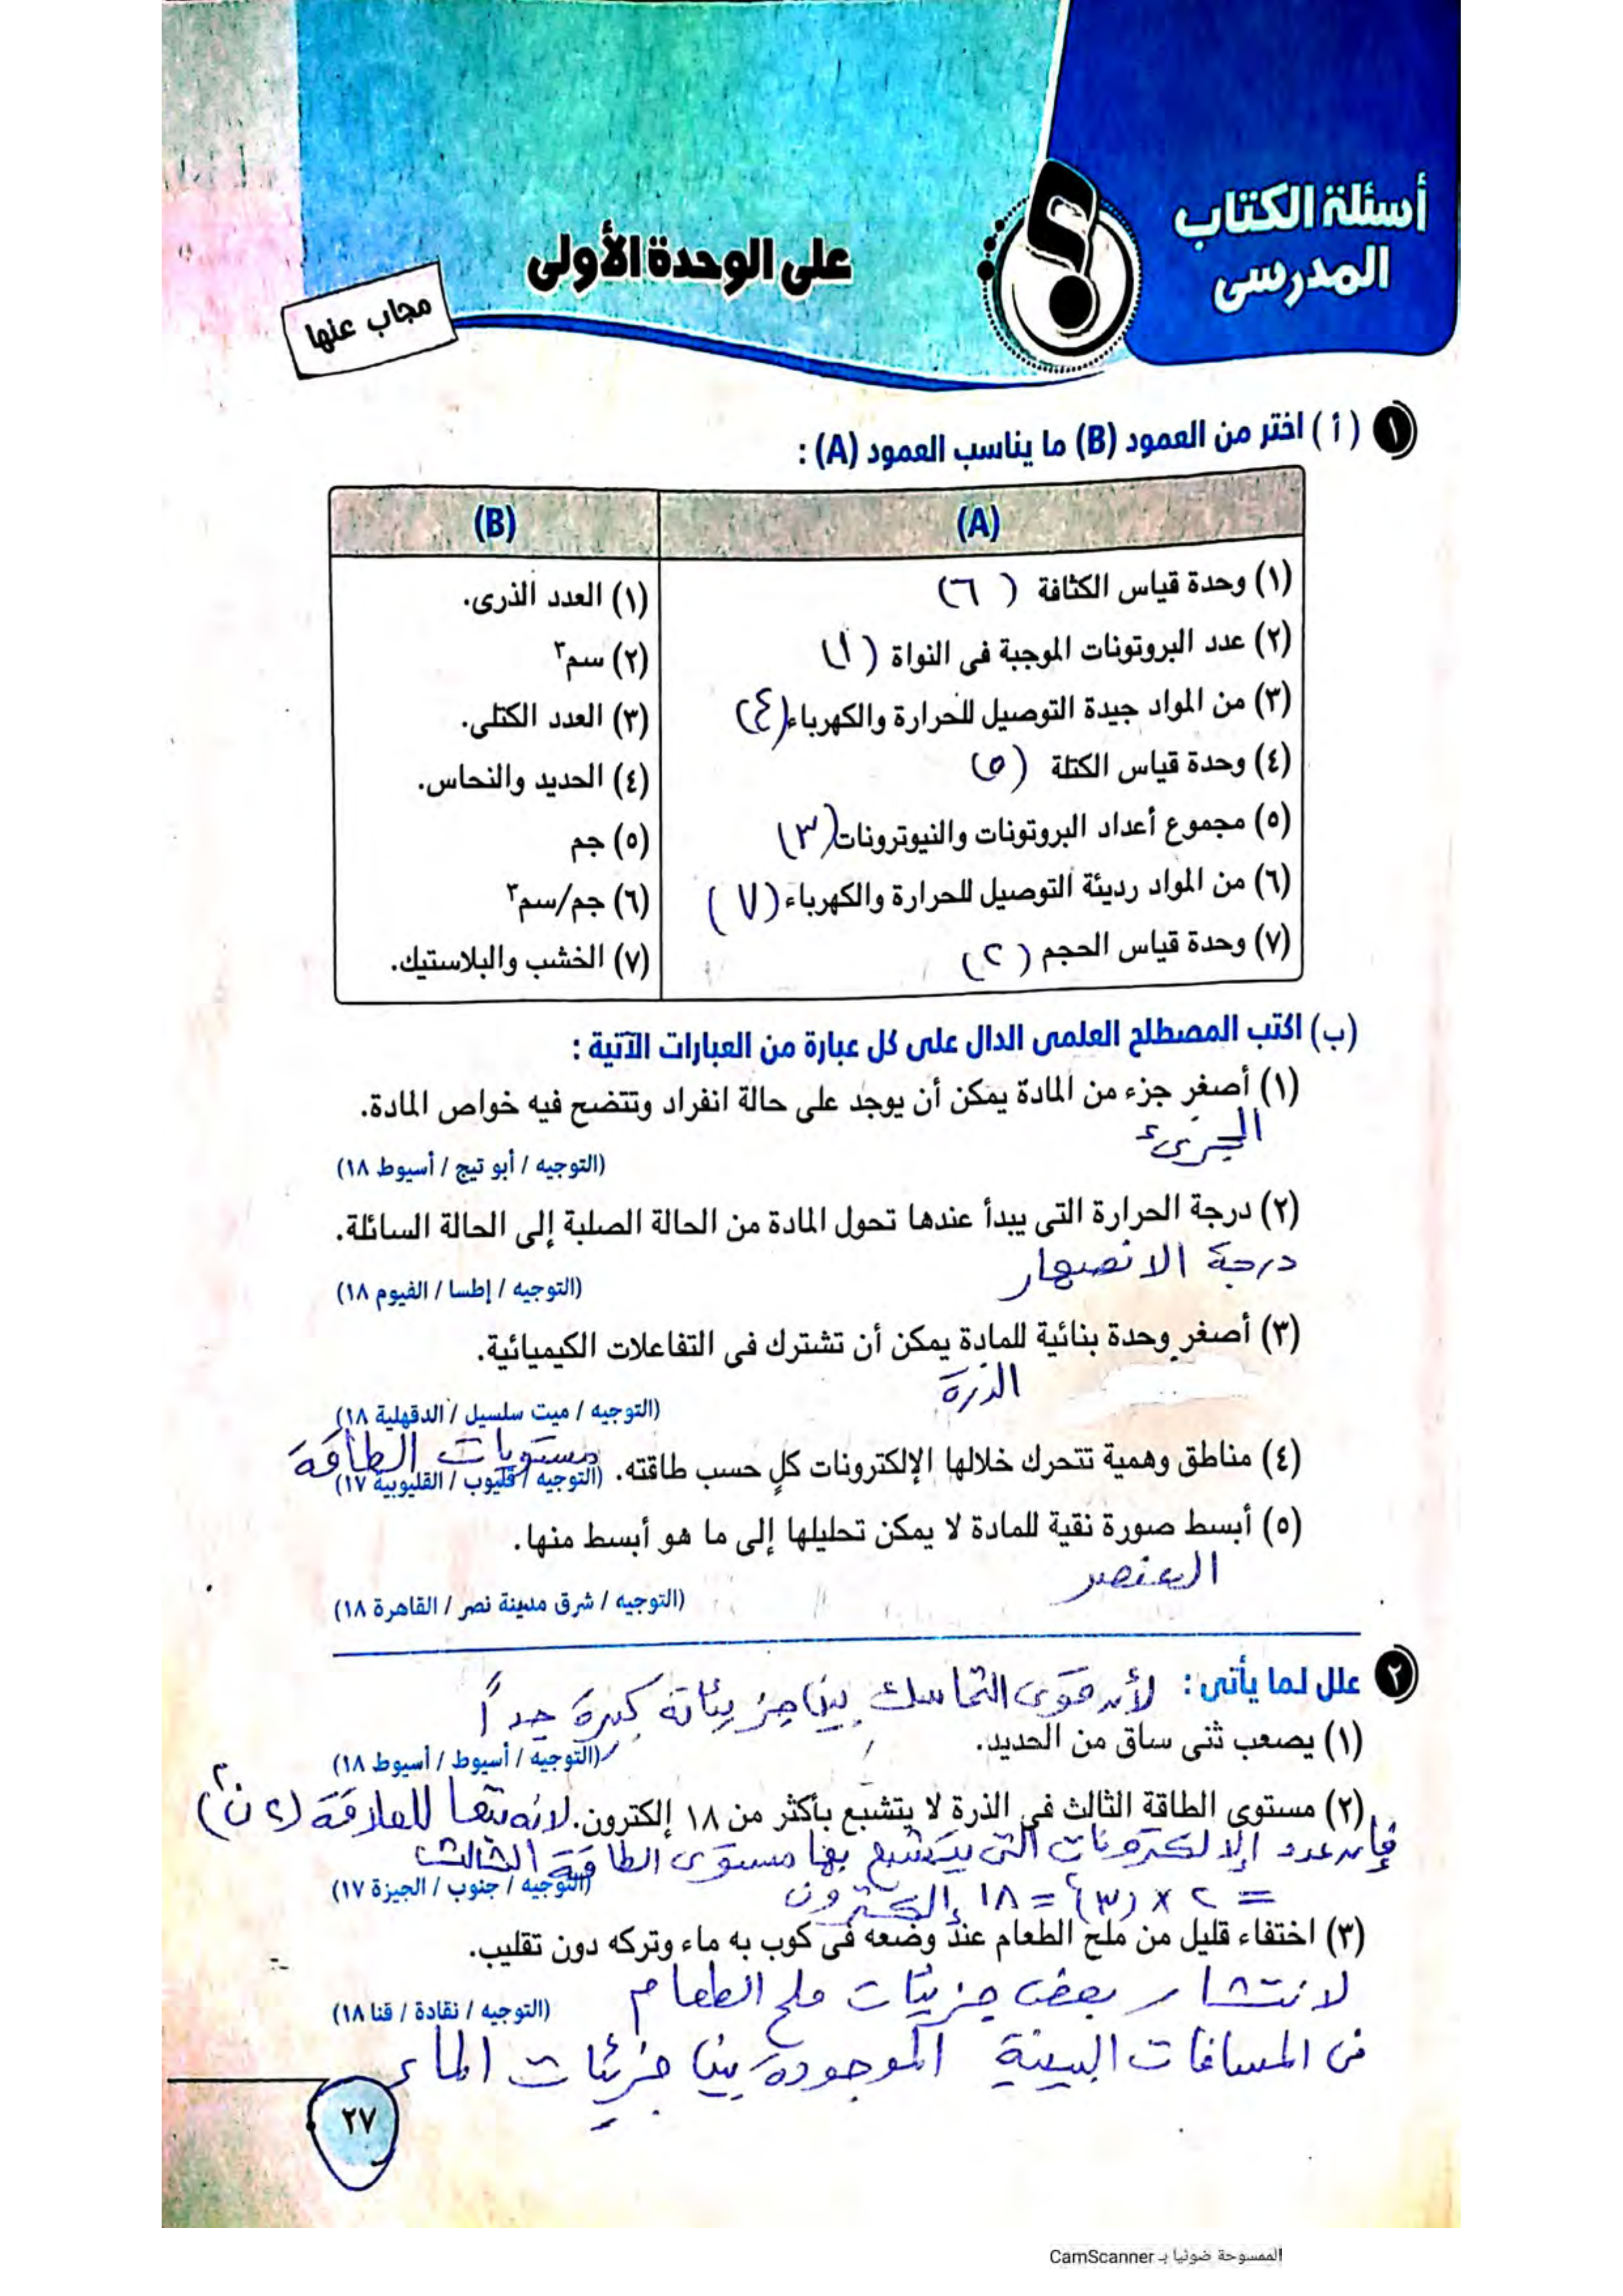 أسئلة الكتاب
المدرسى
على الوحدة الأولى
مجاب عنها
١ ( أ ) اختر من العمود (B) ما يناسب العمود (A) :
(A) (B)
(١) وحدة قياس الكثافة ( ٦ ) (١) العدد الذرى.
(٢) عدد البروتونات الموجبة فى النواة ( ١ ) (٢) سم٣
(٣) من المواد جيدة التوصيل للحرارة والكهرباء (٤) (٣) العدد الكتلى.
(٤) وحدة قياس الكتلة ( ٥ ) (٤) الحديد والنحاس.
(٥) مجموع أعداد البروتونات والنيوترونات (٣) (٥) جم
(٦) من المواد رديئة التوصيل للحرارة والكهرباء ( ٧ ) (٦) جم/سم٣
(٧) وحدة قياس الحجم ( ٢ ) (٧) الخشب والبلاستيك.
(ب) اكتب المصطلح العلمى الدال على كل عبارة من العبارات الآتية :
(١) أصغر جزء من المادة يمكن أن يوجد على حالة انفراد وتتضح فيه خواص المادة.
الجزىء
(التوجيه / أبو تيج / أسيوط ١٨)
(٢) درجة الحرارة التى يبدأ عندها تحول المادة من الحالة الصلبة إلى الحالة السائلة.
درجة الانصهار
(التوجيه / إطسا / الفيوم ١٨)
(٣) أصغر وحدة بنائية للمادة يمكن أن تشترك فى التفاعلات الكيميائية.
الذرة
(التوجيه / ميت سلسيل / الدقهلية ١٨)
(٤) مناطق وهمية تتحرك خلالها الإلكترونات كلٍ حسب طاقته. مستويات الطاقة
(التوجيه / قليوب / القليوبية ١٧)
(٥) أبسط صورة نقية للمادة لا يمكن تحليلها إلى ما هو أبسط منها.
العنصر
(التوجيه / شرق مدينة نصر / القاهرة ١٨)
٢ علل لما يأتى : لأن قوى التماسك بين جزيئاته كبيرة جداً
(١) يصعب ثنى ساق من الحديد.
(التوجيه / أسيوط / أسيوط ١٨)
(٢) مستوى الطاقة الثالث فى الذرة لا يتشبع بأكثر من ١٨ إلكترون. لانه تبعا للعلاقة (٢ن٢)
فإن عدد الإلكترونات التى يتشبع بها مستوى الطاقة الثالث
(التوجيه / جنوب / الجيزة ١٧)
= ٢ × (٣)٢ = ١٨ إلكترون
(٣) اختفاء قليل من ملح الطعام عند وضعه فى كوب به ماء وتركه دون تقليب.
لانتشار بعض جزيئات ملح الطعام
(التوجيه / نقادة / قنا ١٨)
فى المسافات البينية الموجودة بين جزيئات الماء
٢٧
الممسوحة ضوئيا بـ CamScanner